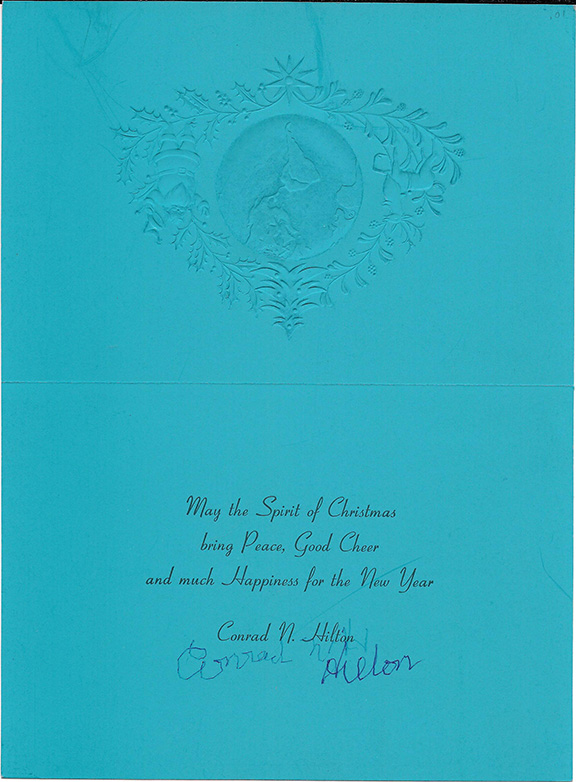 May the Spirit of Christmas
bring Peace, Good Cheer
and much Happiness for the New Year
Conrad N. Hilton
Conrad N. Hilton